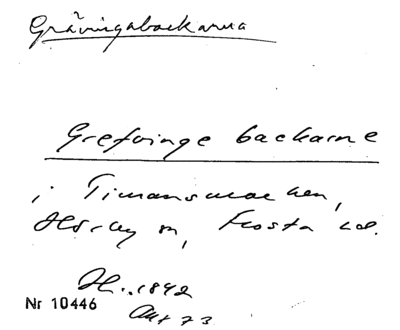 Grävingabackarna
Grefvinge backarne
i Timansmarken,
Hörby sn, Frosta hd.
H. 1892
Nr 10446
Akt 73